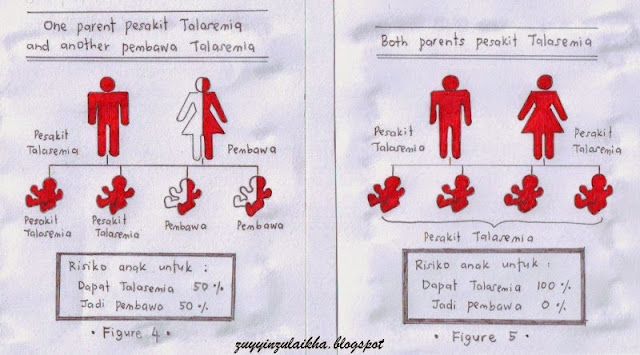 One parent pesakit Talasemia
and another pembawa Talasemia
Pesakit
Talasemia
Pembawa
Pesakit
Talasemia
Pesakit
Talasemia
Pembawa
Pembawa
Risiko anak untuk :
Dapat Talasemia 50 %
Jadi Pembawa 50 %
• Figure 4 •
Both parents pesakit Talasemia
Pesakit
Talasemia
Pesakit
Talasemia
Pesakit Talasemia
Risiko anak untuk :
Dapat Talasemia 100 %
Jadi pembawa 0 %
• Figure 5 •
zuyyinzulaikha.blogspot